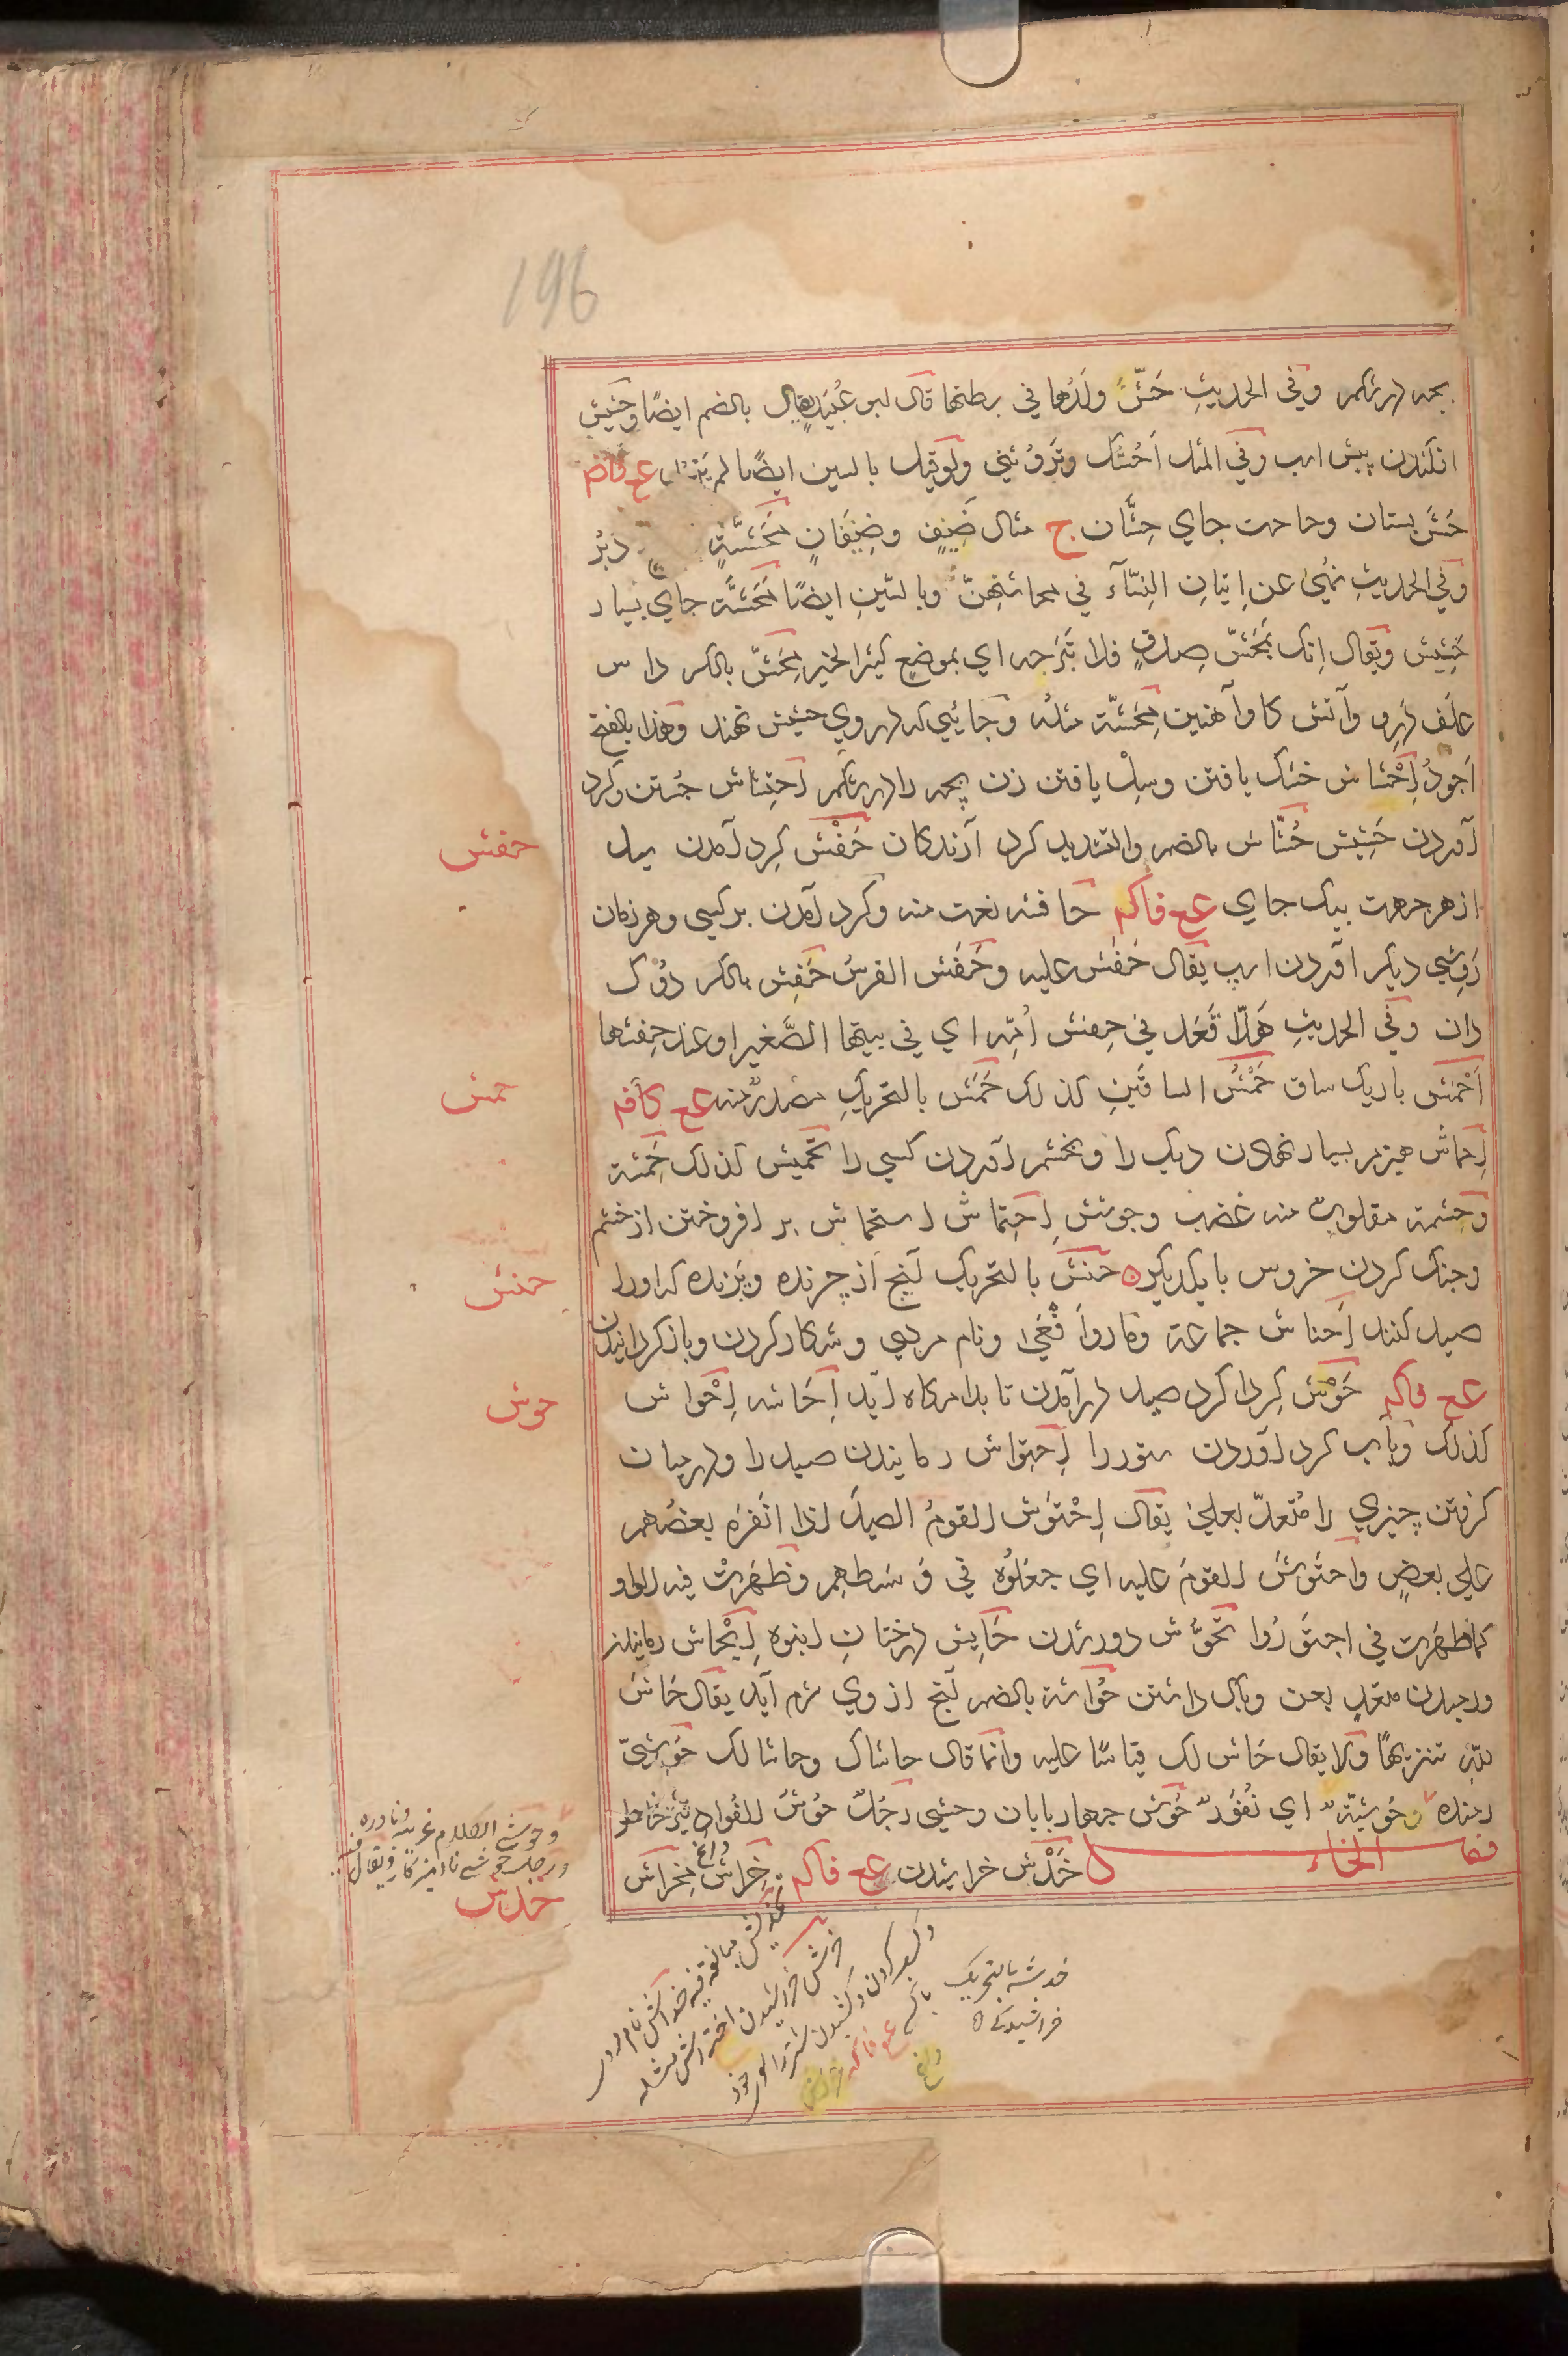 196
بچه در شکم وفي الحديثِ حَشَّ ولَدُها في بطنها قال ابو عُبَيدٍ يقال بالضم ايضًا وحَشيش
افكندن پيش اسب وفي المثل اَحُشُّكَ وتَرُوثُني ولو قيل بالسين ايضًا لم عع فاضم
حُشَّ بستان وحاجت جاي حِشّان ج مثال ضَيفٍ وضِيفَانٍ مَحَشَّةٌ دُبُر
وفي الحديثِ نهُيَ عن اِتيانِ النِّسَآء في محاشِّهِنّ وبالسّينِ ايضًا مَحَشَّة جاي بسيار
حَشيش ويقال اِنّكَ بِمَحَشِّ صِدقٍ فلا تَبرَحه اي بموضعٍ كثيرالخير مِحَشّ بالكسر داس
علف درو وآتش كاو آهنين مِحَشّة مثلُه وجايي كه در وي حشيش نهند وهذا بالفتح
اَجودُ اِحْشاش خشك يافتن وسِلْ يافتن زن بچه را در شكم احتِشاش جُستن وكرد
آوردن حَشيش حُشّاش بالضم والتشديد كرد آرندكان حَفْش كِرد آمدن سيل
از هر جهت بيك جاي عع فاكم حافشه نعت منه وكرد آمدن بر كسي وهر زمان
رَوِشي ديكر آوردن اسپ يقال حَفَش عليه وحَفَش الفرسُ حِفش بالكسر دوك
دان وفي الحديثِ هَلّا قَعَد في حِفش اُمِّه اي في بيتها الصَّغير او عند حِفشها
اَحْمَش باريك ساق حَمْشُ الساقَينِ كذلك حَمَش بالتحريكِ مصدرٌ منه عع كافم
اِحماش هيزم بسيار نهادن ديك را وبخشم آوردن كسي را تَحميش كذلك حَمشة
وحِشمة مقلوبٌ منه غضب وجوشش اِحتِماش استحماش بر افروختن از خشم
وجنك كردن خروس با يكديكر ه حَنَش بالتحريك آنچ از چرنده وپرنده كه اورا
صيد كنند اَحناش جماعة ومار واَفْعَي ونام مردي وشكار كردن وباز كردانيدن
عع فاكم حَوْش كِردا كرد صيد درآمدن تا بدامكاه آيد اِحَاشه اِحْواش
كذلك وباب كرد آوردن ستور را اِحتِواش رمانيدن صيد را ودر ميان
كرفتن چيزي را مُتعدّ بعليٰ يقال اِحْتَوَش القومُ الصيدَ اذا انفَرَه بعضُهم
علي بعضٍ واحتَوَشَ القومَ عليه اي جعَلوُه في وَسَطهِم وظهَرت فيه الواو
كما ظهَرت في اجتَوَرُوا تَحَوُّش دور شدن حَايِش درختانِ انبوه اِنحِاش رمانيدن
ورميدن متعدٍ بعن وباك داشتن حُواشة بالضم آنچ از وي شرم آيد يقال حَاشَ
للّهِ تنزيهًا ولا يقال حَاش لكَ قياسًا عليه وانما قال حاشاك وحاشا لك حُوشِيّ
رمنده وحُوشيّةٌ اي نُفُورٌ حُوش جهار بايان وحشي رجُلٌ حُوشُ الفُواد تيز خاطر
فصا الخاء خَدْش خراشيدن عع فاكم خِراش بخراش
حفش
حمش
حنش
حوش
وحوشي الكلام غريبه ونادره
ورجل حوشي نا اميزكار ويقال
خدش
داغ
خدشة بالتحريك
خراشيدكي ه
خدش مبالغة فيه خداش نام مرد
خرش خراشيدن اختراش مثله
وكسب كردن وكشيدن شتر را سوي خود
باكسي عع فاكم خراش
داغ